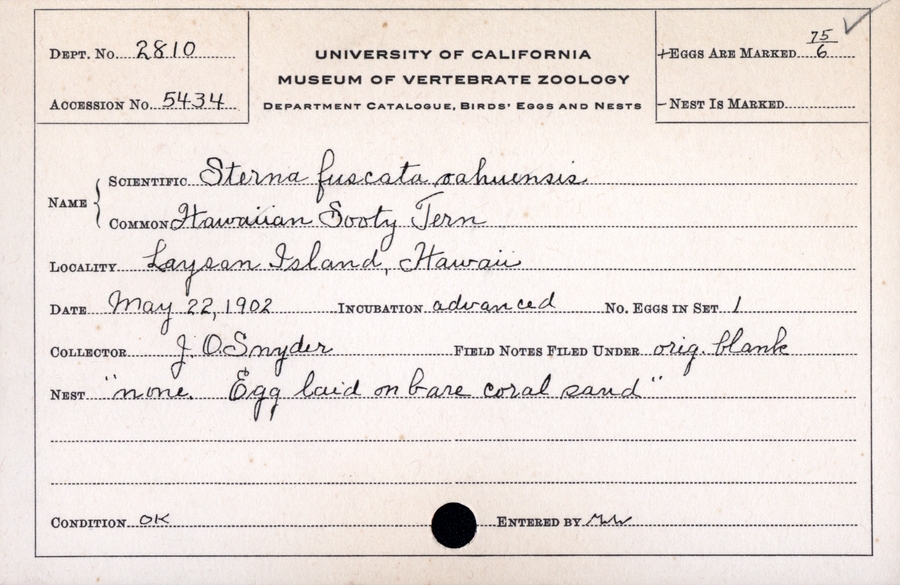 DEPT. No. 2810
ACCESSION No. 5434
UNIVERSITY OF CALIFORNIA
MUSEUM OF VERTEBRATE ZOOLOGY
DEPARTMENT CATALOGUE, BIRDS' EGGS AND NESTS
+EGGS ARE MARKED 75/6
-NEST IS MARKED
NAME
SCIENTIFIC Sterna fuscata oahuensis
COMMON Hawaiian Sooty Tern
LOCALITY Laysan Island, Hawaii
DATE May 22, 1902 INCUBATION advanced No. EGGS IN SET 1
COLLECTOR J. O. Snyder FIELD NOTES FILED UNDER orig. blank
NEST "none. Egg laid on bare coral sand"
CONDITION OK ENTERED BY